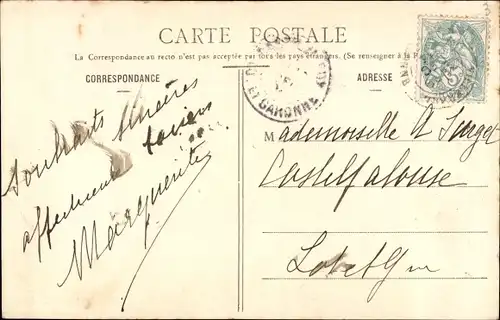 CARTE POSTALE
La Correspondance au recto n'est pas acceptée par tous les pays étrangers. (Se renseigner à la P
CORRESPONDANCE
ADRESSE
Souhaits sincères
affectueux baisers
Marguerite
Mademoiselle A
Casteljalouse
Lot et Gne
ET GARONNE